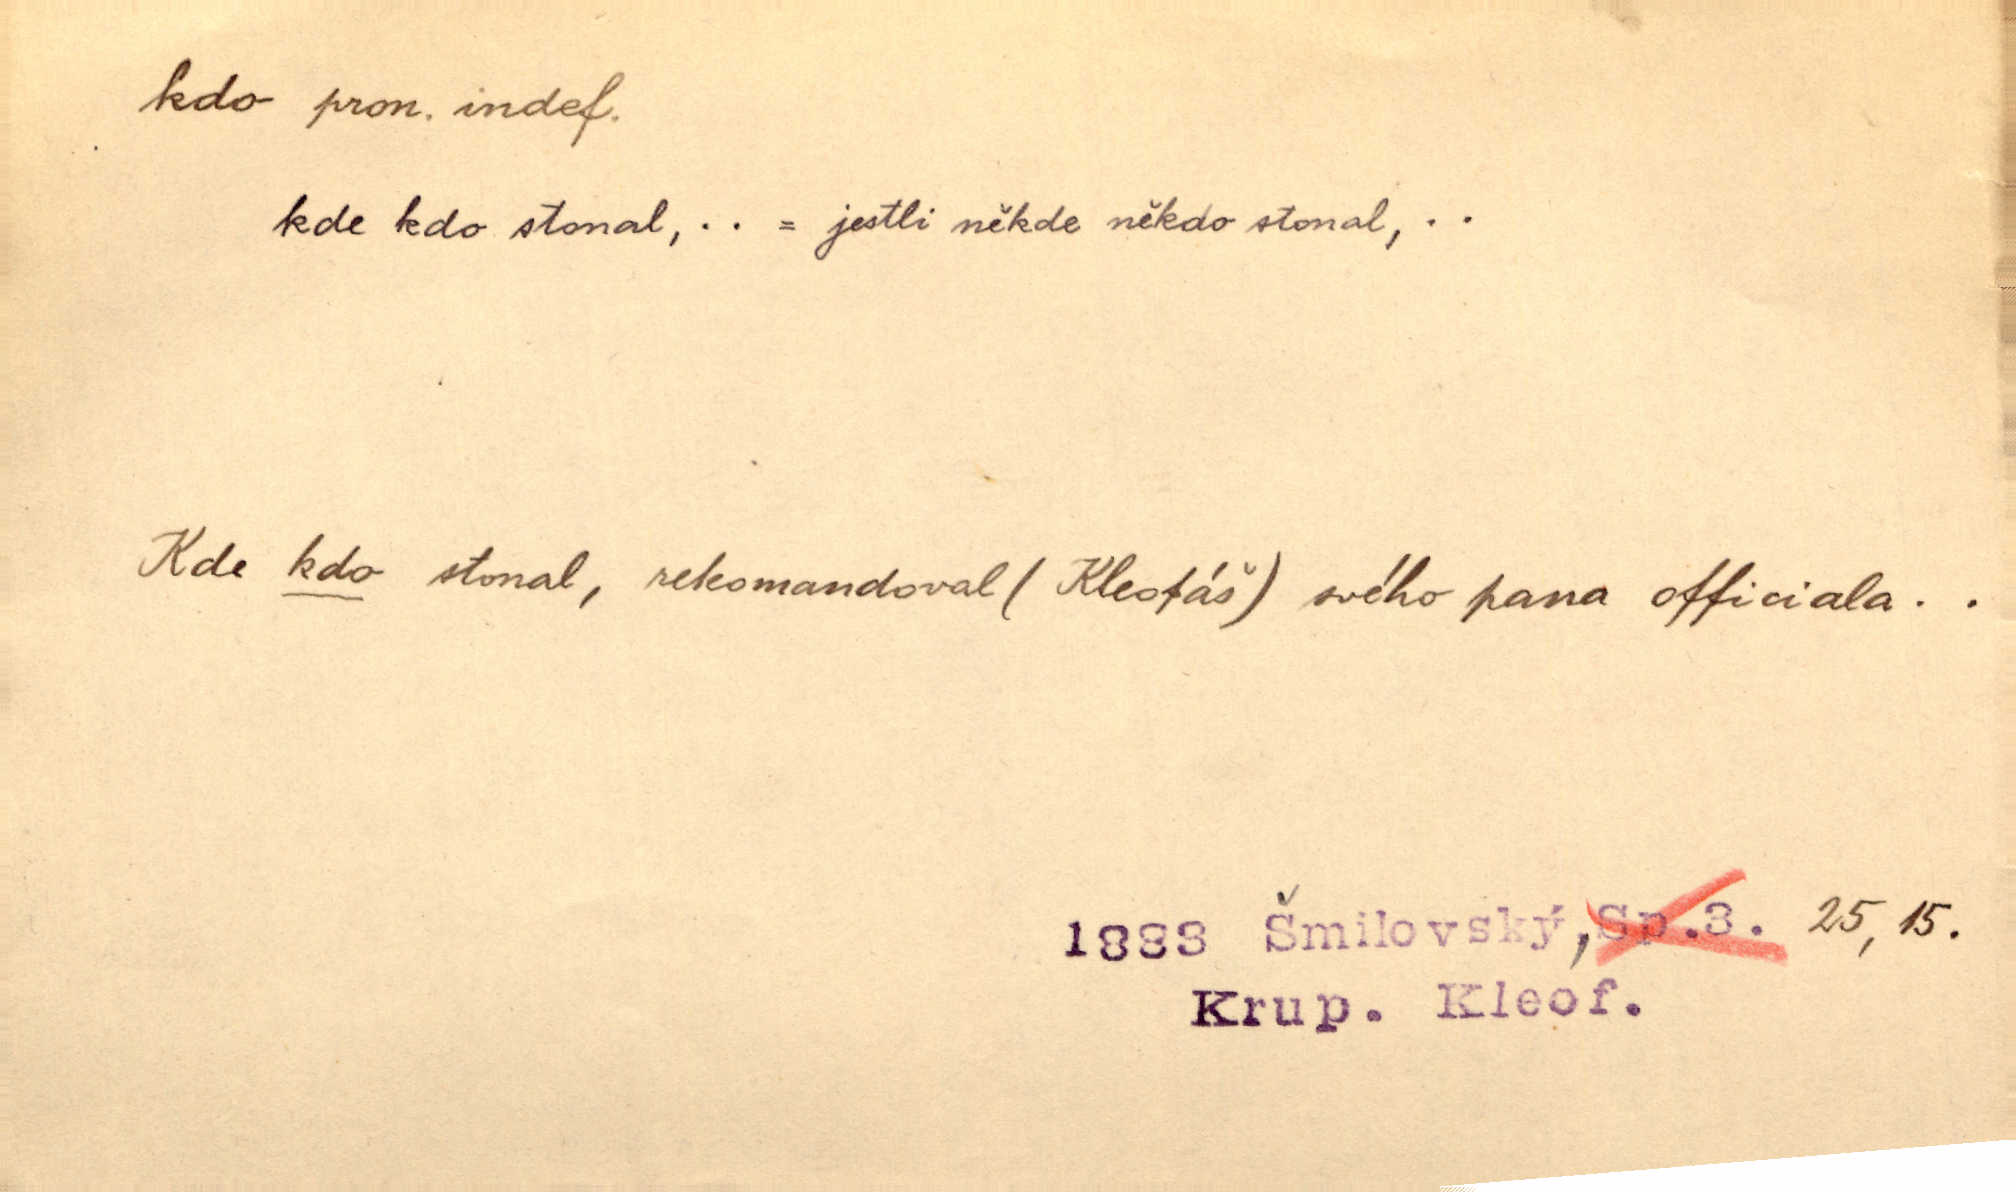 kdo pron. indef.
kde kdo stonal, . . = jestli někde někdo stonal, . .
Kde kdo stonal, rekomandoval (Kleofáš) svého pana officiala . .
1883 Šmilovský, Sp.3. 25, 15.
Krup. Kleof.